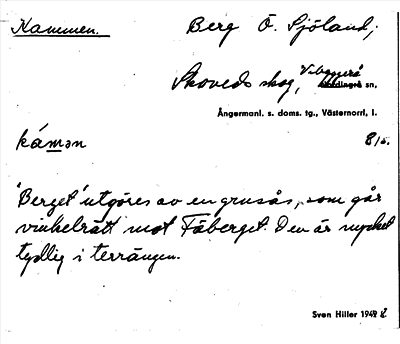 Kammen.
Berg Ö. Sjöland,
Skoveds skog, Vibyggerå sn,
Ångermanl. s. doms. tg., Västernorrl, l.
kámən
8/5.
'Berget' utgöres av en grusås, som går
vinkelrätt mot Fäberget. Den är mycket
tydlig i terrängen.
Sven Hiller 1942